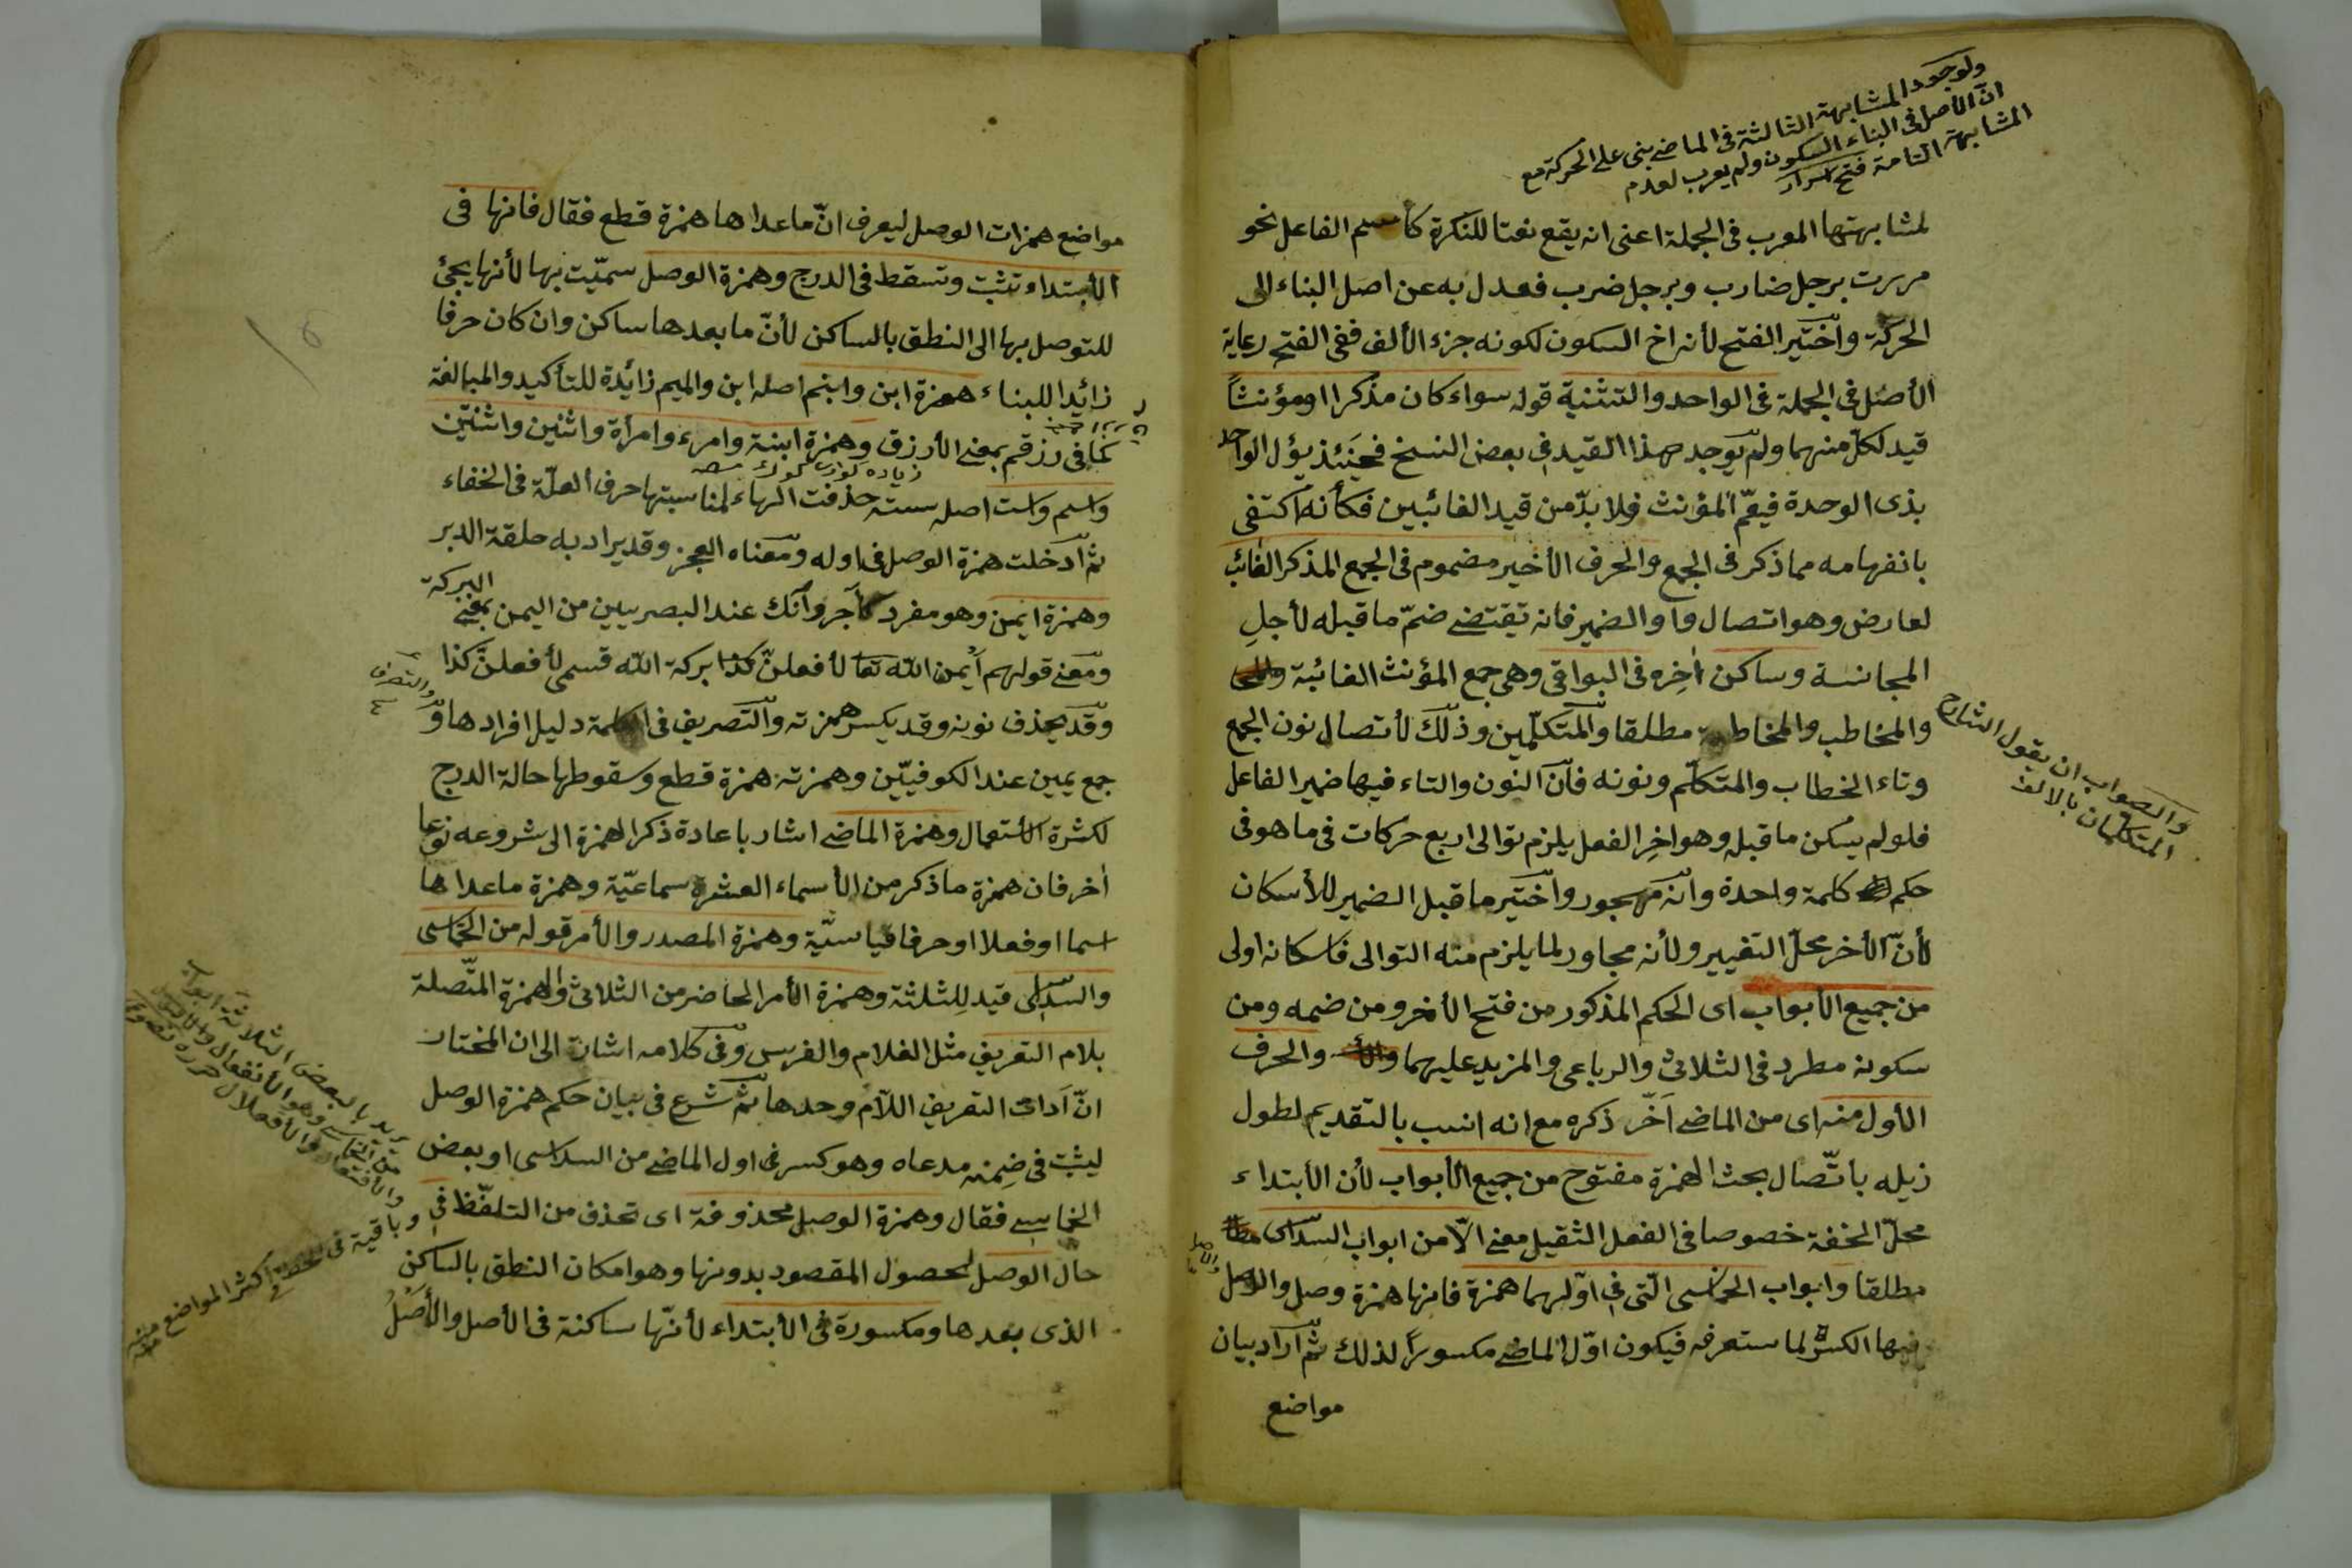 ولوجود المشابهة الثالثة فى الماضى بنى على الحركة مع
انّ الأصل فى البناء السكون ولم يعرب لعدم
المشابهة التامة فتح اسرار
لمشابهتها المعرب فى الجملة اعنى انه يقع نعتا للنكرة كأسم الفاعل نحو
مررت برجل ضارب وبرجل ضرب فعدل به عن اصل البناء الى
الحركة واختير الفتح لأنه اخ السكون لكونه جزء الألف ففى الفتح رعاية
الأصل فى الجملة فى الواحد والتثنية قوله سواء كان مذكرا اومؤنثاً
قيد لكلّ منهما ولم يوجد هذا القيد فى بعض النسخ فحينئذ يؤل الواحد
بذى الوحدة فيعمّ المؤنث فلا بدّ من قيد الغائبين فكأنه اكتفى
بانفهامه مما ذكر فى الجمع والحرف الأخير مضموم فى الجمع المذكر الغائب
لعارض وهو اتصال واو الضمير فانه تقتضى ضمّ ما قبله لأجلِ
المجانسة وساكن اٰخِره فى البواقى وهى جمع المؤنث الغائبة
والمخاطب والمخاطبة مطلقا والمتكلّمين وذلك لأتصال نون الجمع
والصواب ان يقول الشارح
المتكلمان بالالف
وتاء الخطاب والمتكلّم ونونه فانّ النون والتاء فيها ضمير الفاعل
فلو لم يسكن ما قبله وهو اخِر الفعل يلزم توالى اربع حركات فى ما هو فى
حكم كلمة واحدة وانه مهجور واختير ما قبل الضمير للأسكان
لأنّ الأخر محلّ التغيير ولأنه مجاور لما يلزم منه التوالى فاسكانه اولى
من جميع الأبواب اى الحكم المذكور من فتح الأخر ومن ضمه ومن
سكونه مطرد فى الثلاثى والرباعى والمزيد عليهما والحرف
الأول منه اى من الماضى اَخّر ذكره مع انه انسب بالتقديم لطول
ذيله باتّصال بحث الهمزة مفتوح من جميع الأبواب لأن الأبتداء
محلّ الخفة خصوصا فى الفعل الثقيل معنى الاّ من ابواب السداسى
مطلقا وابواب الخماسى الّتى فى اوّلهما همزة فانها همزة وصل والاصل
فيها الكسرة لما ستعرفه فيكون اوّل الماضى مكسوراً لذلك ثمّ اراد بيان
مواضع
مواضع همزات الوصل ليعرف انّ ما عداها همزة قطع فقال فانها فى
الأبتداء تثبت وتسقط فى الدرج وهمزة الوصل سمّيت بها لأنها يجئ
للتوصل بها الى النطق بالساكن لأنّ ما بعدها ساكن وان كان حرفا
زائدا للبناء همزة ابن وابنم اصله ابن والميم زائدة للتأكيد والمبالغة
كما فى زرقم بمعنى الأزرق وهمزة ابنة وامرء وامرأة واثنين واثنتين
واسم واست اصله سته حذفت الهاء لمناسبتها حرف العلّة فى الخفاء
ثمّ ادخلت همزة الوصل فى اوله ومعناه العجز وقد يراد به حلقة الدبر
وهمزة ايمن وهو مفرد كآجر وآنك عند البصريين من اليمن بمعنى البركة
ومعنى قولهم أيمن الله تعا لأفعلنّ كذا بركة الله قسمى لأفعلنّ كذا
وقد يحذف نونه وقد يكسر همزته والتصريف فى الكلمة دليل افرادها و
والتصرف
جمع يمين عند الكوفيّين وهمزته همزة قطع وسقوطها حالة الدرج
لكثرة الأستعمال وهمزة الماضى اشار باعادة ذكر الهمزة الى شروعه نوعا
اٰخر فان همزة ما ذكر من الأسماء العشرة سماعيّة وهمزة ما عداها
اسما اوفعلا اوحرفا قياسيّة وهمزة المصدر والأمر قوله من الخماسى
والسداسى قيد للِثلثة وهمزة الأمر الحاضر من الثلاثى والهمزة المتّصلة
بلام التعريف مثل الغلام والفرس وفى كلامه اشارة الى ان المختار
انّ اَداة التعريف اللاّم وحدها ثمّ شرع فى بيان حكم همزة الوصل
ليثبت فى ضِمنه مدعاه وهو كسر فى اول الماضى من السداسى اوبعض
يريد بالبعض الثلاثة ابواب
من الخماسى وهو الأنفعال
والأفتعال والأفعلال
وباقية فى الخط فى اكثر المواضع منه
الخماسى فقال وهمزة الوصل محذوفة اى تحذف من التلفّظ فى
حال الوصل لحصول المقصود بدونها وهو امكان النطق بالساكن
الذى بعدها ومكسورة فى الأبتداء لأنّها ساكنة فى الأصل والأصْلُ